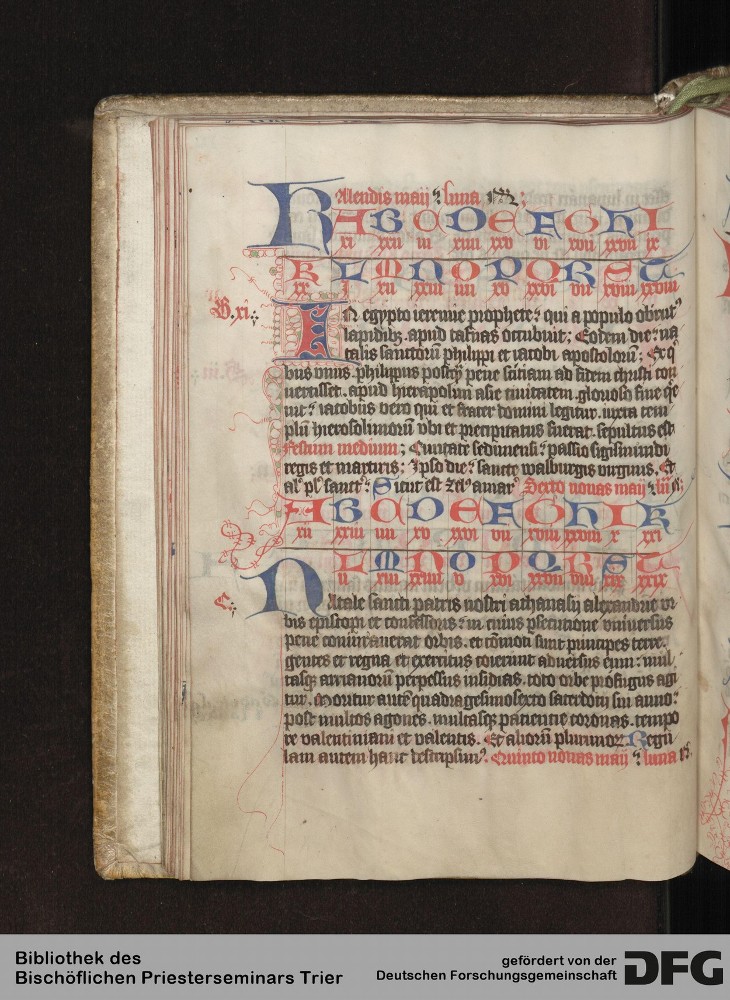 Kalendis maij ⁊ luna
A B C D E F G H I
xi xxii iii xiiii xxv vi xvii xxviii ix
K L M N O P Q R S T
xx i xii xxiii iiii xv xxvi vii xviii xxviiii
B. xi.
IN egypto ieremie prophete: qui a populo obrutꝰ
lapidibꝫ. apud tafnas occubuit; Eodem die: na
talis sanctorū philippi et iacobi apostolorū; Ex qͥ
bus vnus. philippus postqͣꝫ pene sithiam ad fidem christi con
uertisset. apud hierapolim asie ciuitatem. glorioso fine qͥe
uit: iacobus vero qui et frater domini legitur. iuxta tem
plū hierosolimorū vbi et precipitatus fuerat. sepultus est
festum medium; Ciuitate sedunensi: passio sigismundi
regis et martiris: Ipso die: sancte walburgis virginis. Et
alꝰ plꝰ sanctꝰ: Sicut est Sexto nonas maij ⁊
A B C D E F G H I K
xii xxiii iiii xv xxvi vii xviii xxviiii x xxi
L M N O P Q R S T
ii xiii xxiiii v xvi xxvii viii xix xxix
C.
NAtale sancti patris nostri athanasij alexandrie vr
bis episcopi et confessoris: in cuius ꝑsecutione vniuersus
pene coniurauerat orbis. et cōmoti sunt principes terre.
gentes et regna et exercitus coierunt aduersus eum: mul
tasqꝫ arrianorū perpessus insidias. toto orbe profugus agi
tur. Moritur autē quadragesimosexto sacerdotij sui anno:
post multos agones. multasqꝫ patientie coronas. tempo
re valentiniani et valentis. Et aliorū plurimoꝝ Regu
lam autem hanc descripsimꝰ. Quinto nonas maij ⁊ luna
Bibliothek des
Bischöflichen Priesterseminars Trier
gefördert von der
Deutschen Forschungsgemeinschaft
DFG